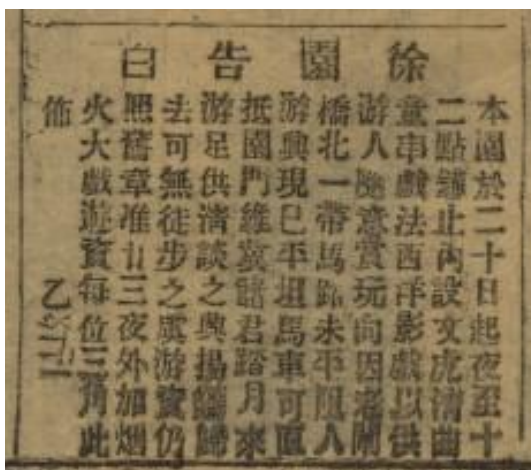 徐園告白
本園於二十日起夜至十
二點鐘止內設文虎清曲
童串戲法西洋影戲以供
游人隨意賞玩向因老閘
橋北一帶馬路未平阻人
游興現已平坦馬車可直
抵園門維冀諸君踏月來
游足供清談之興揚鑣歸
去可無徒步之虞游資仍
照舊章准廿三夜外加烟
火大戲遊資每位三角此
佈